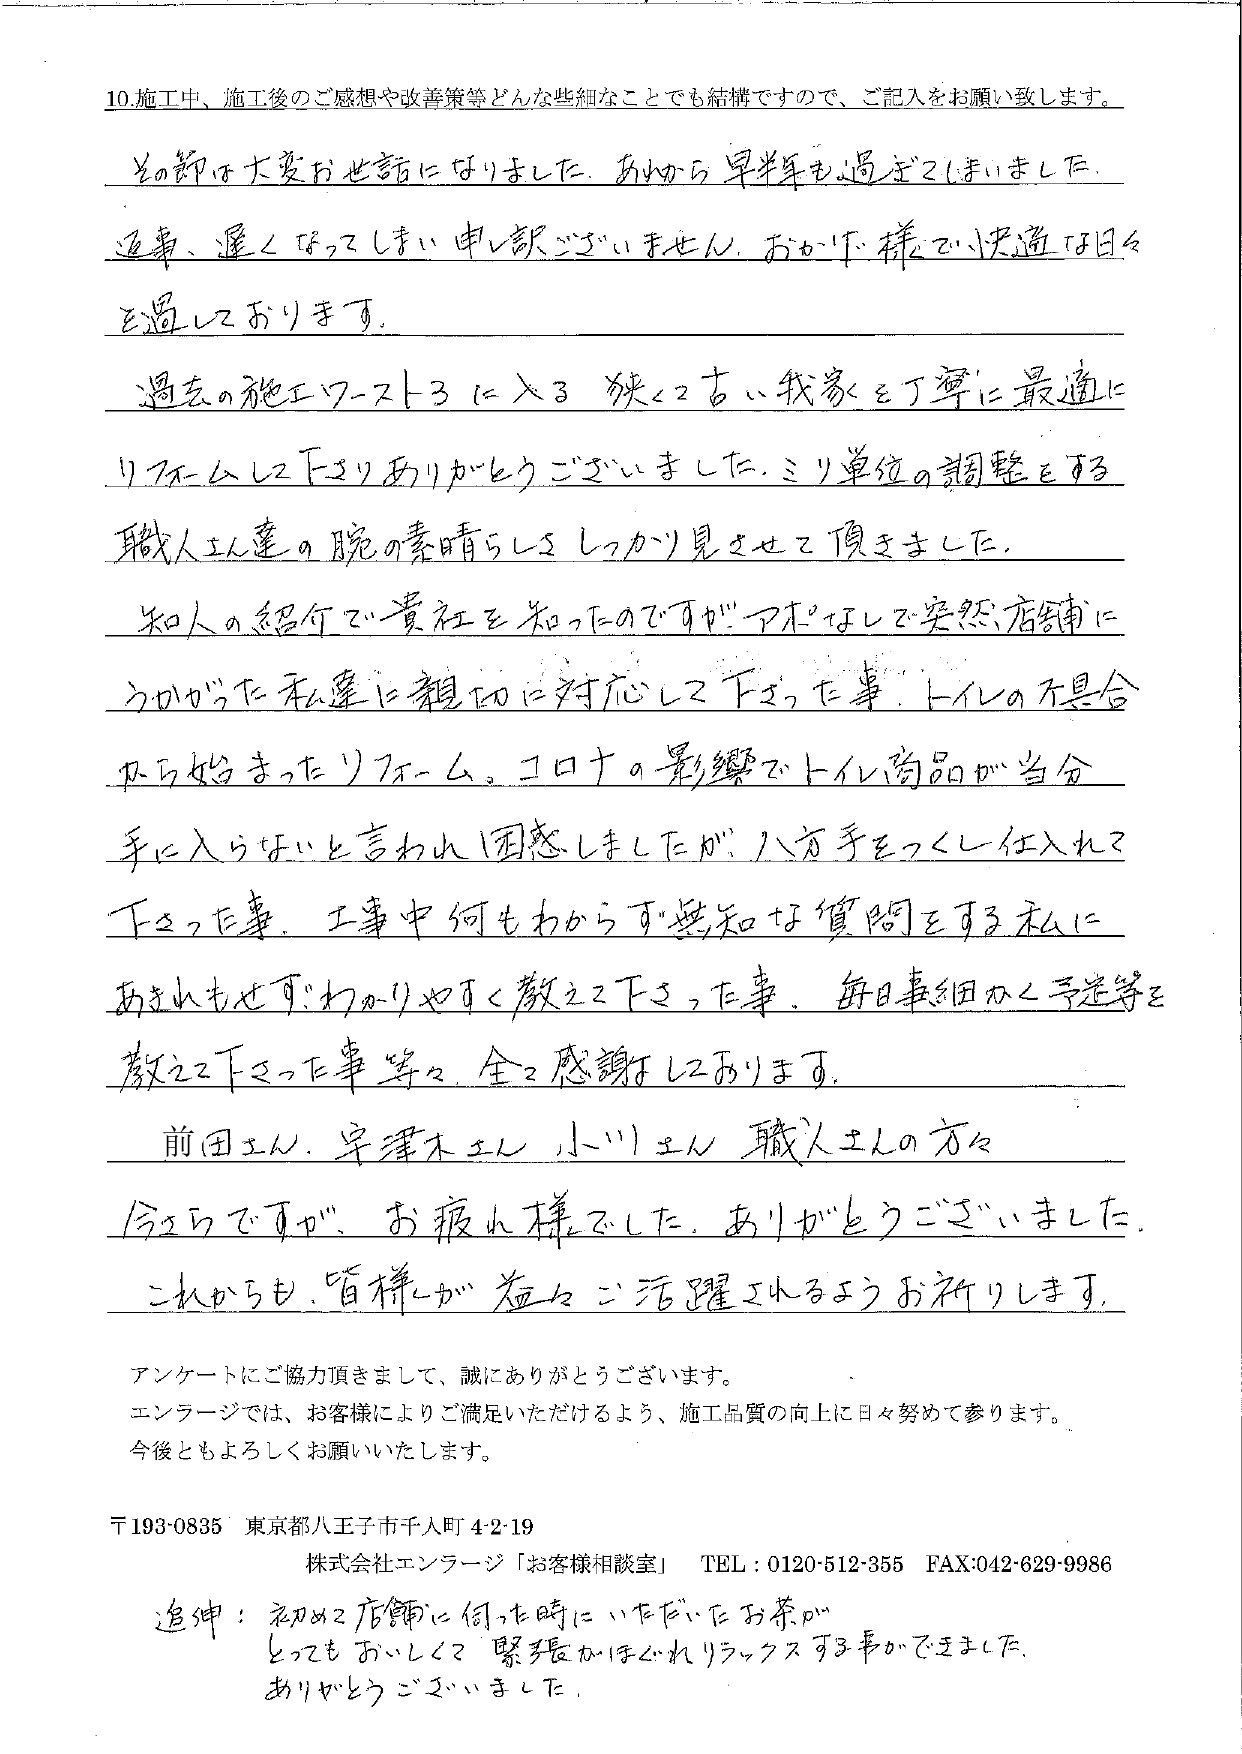 10.施工中、施工後のご感想や改善策等どんな些細なことでも結構ですので、ご記入をお願い致します。
その節は大変お世話になりました。あれから早半年も過ぎてしまいました。
返事、遅くなってしまい申し訳ございません。おかげ様で快適な日々
を過しております。
過去の施工ワースト3に入る狭くて古い我家を丁寧に最適に
リフォームして下さりありがとうございました。ミリ単位の調整をする
職人さん達の腕の素晴らしさしっかり見させて頂きました。
知人の紹介で貴社を知ったのですがアポなしで突然、店舗に
うかがった私達に親切に対応して下さった事。トイレの不具合
から始まったリフォーム。コロナの影響でトイレ商品が当分
手に入らないと言われ困惑しましたが、八方手をつくし仕入れて
下さった事。工事中何もわからず無知な質問をする私に
あきれもせず、わかりやすく教えて下さった事。毎日事細かく予定等を
教えて下さった事等々。全て感謝しております。
前田さん、宇津木さん 小川さん 職人さんの方々
今さらですが、お疲れ様でした。ありがとうございました。
これからも、皆様が益々ご活躍されるようお祈りします。
アンケートにご協力頂きまして、誠にありがとうございます。
エンラージでは、お客様によりご満足いただけるよう、施工品質の向上に日々努めて参ります。
今後ともよろしくお願いいたします。
〒193-0835 東京都八王子市千人町 4-2-19
株式会社エンラージ「お客様相談室」 TEL:0120-512-355 FAX:042-629-9986
追伸：初めて店舗に伺った時にいただいたお茶が
とってもおいしくて緊張がほぐれリラックスする事ができました。
ありがとうございました。